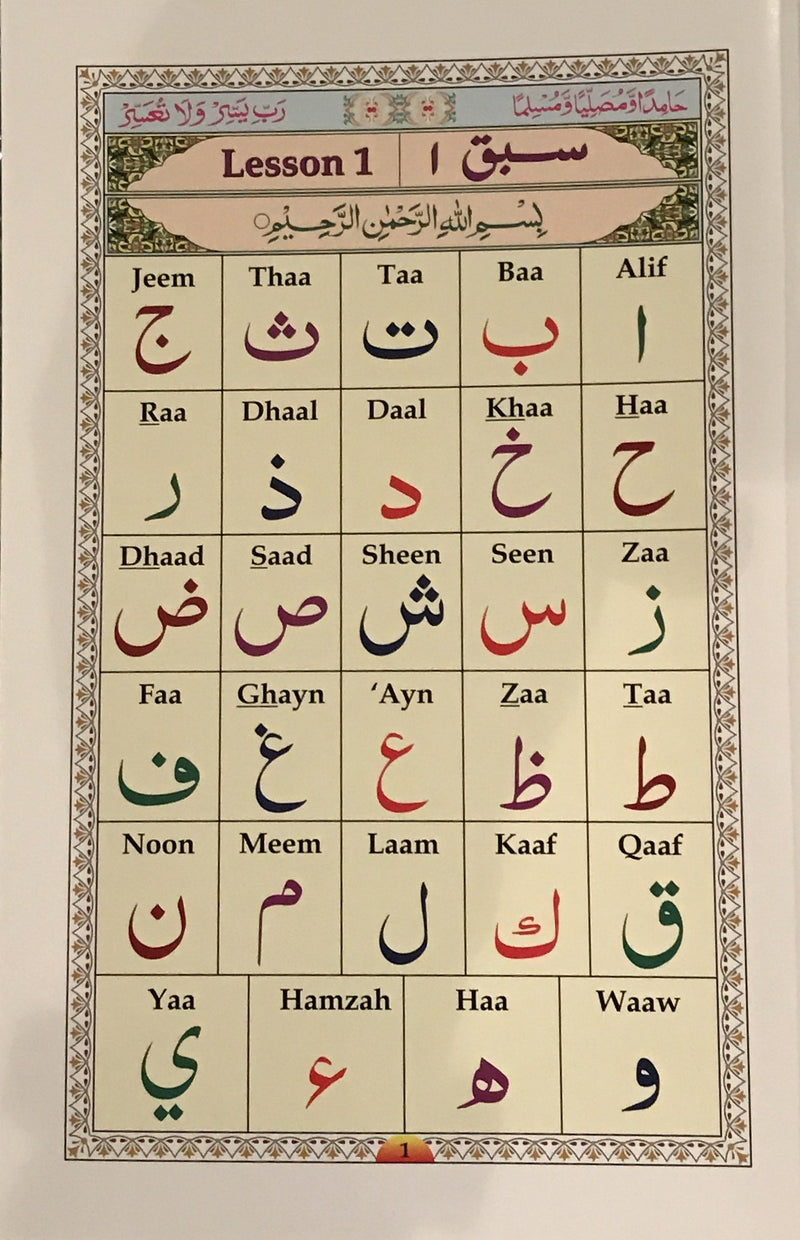 حَامِدًا وَّمُصَلِّيًا وَّمُسْلِمًا رَبِّ يَسِّرْ وَلَا تُعَسِّرْ
سبق ١ Lesson 1
بِسْمِ اللهِ الرَّحْمٰنِ الرَّحِيْمِ○
Alif Baa Taa Thaa Jeem
ا ب ت ث ج
Haa Khaa Daal Dhaal Raa
ح خ د ذ ر
Zaa Seen Sheen Saad Dhaad
ز س ش ص ض
Taa Zaa ‘Ayn Ghayn Faa
ط ظ ع غ ف
Qaaf Kaaf Laam Meem Noon
ق ك ل م ن
Waaw Haa Hamzah Yaa
و ه ء ي
1